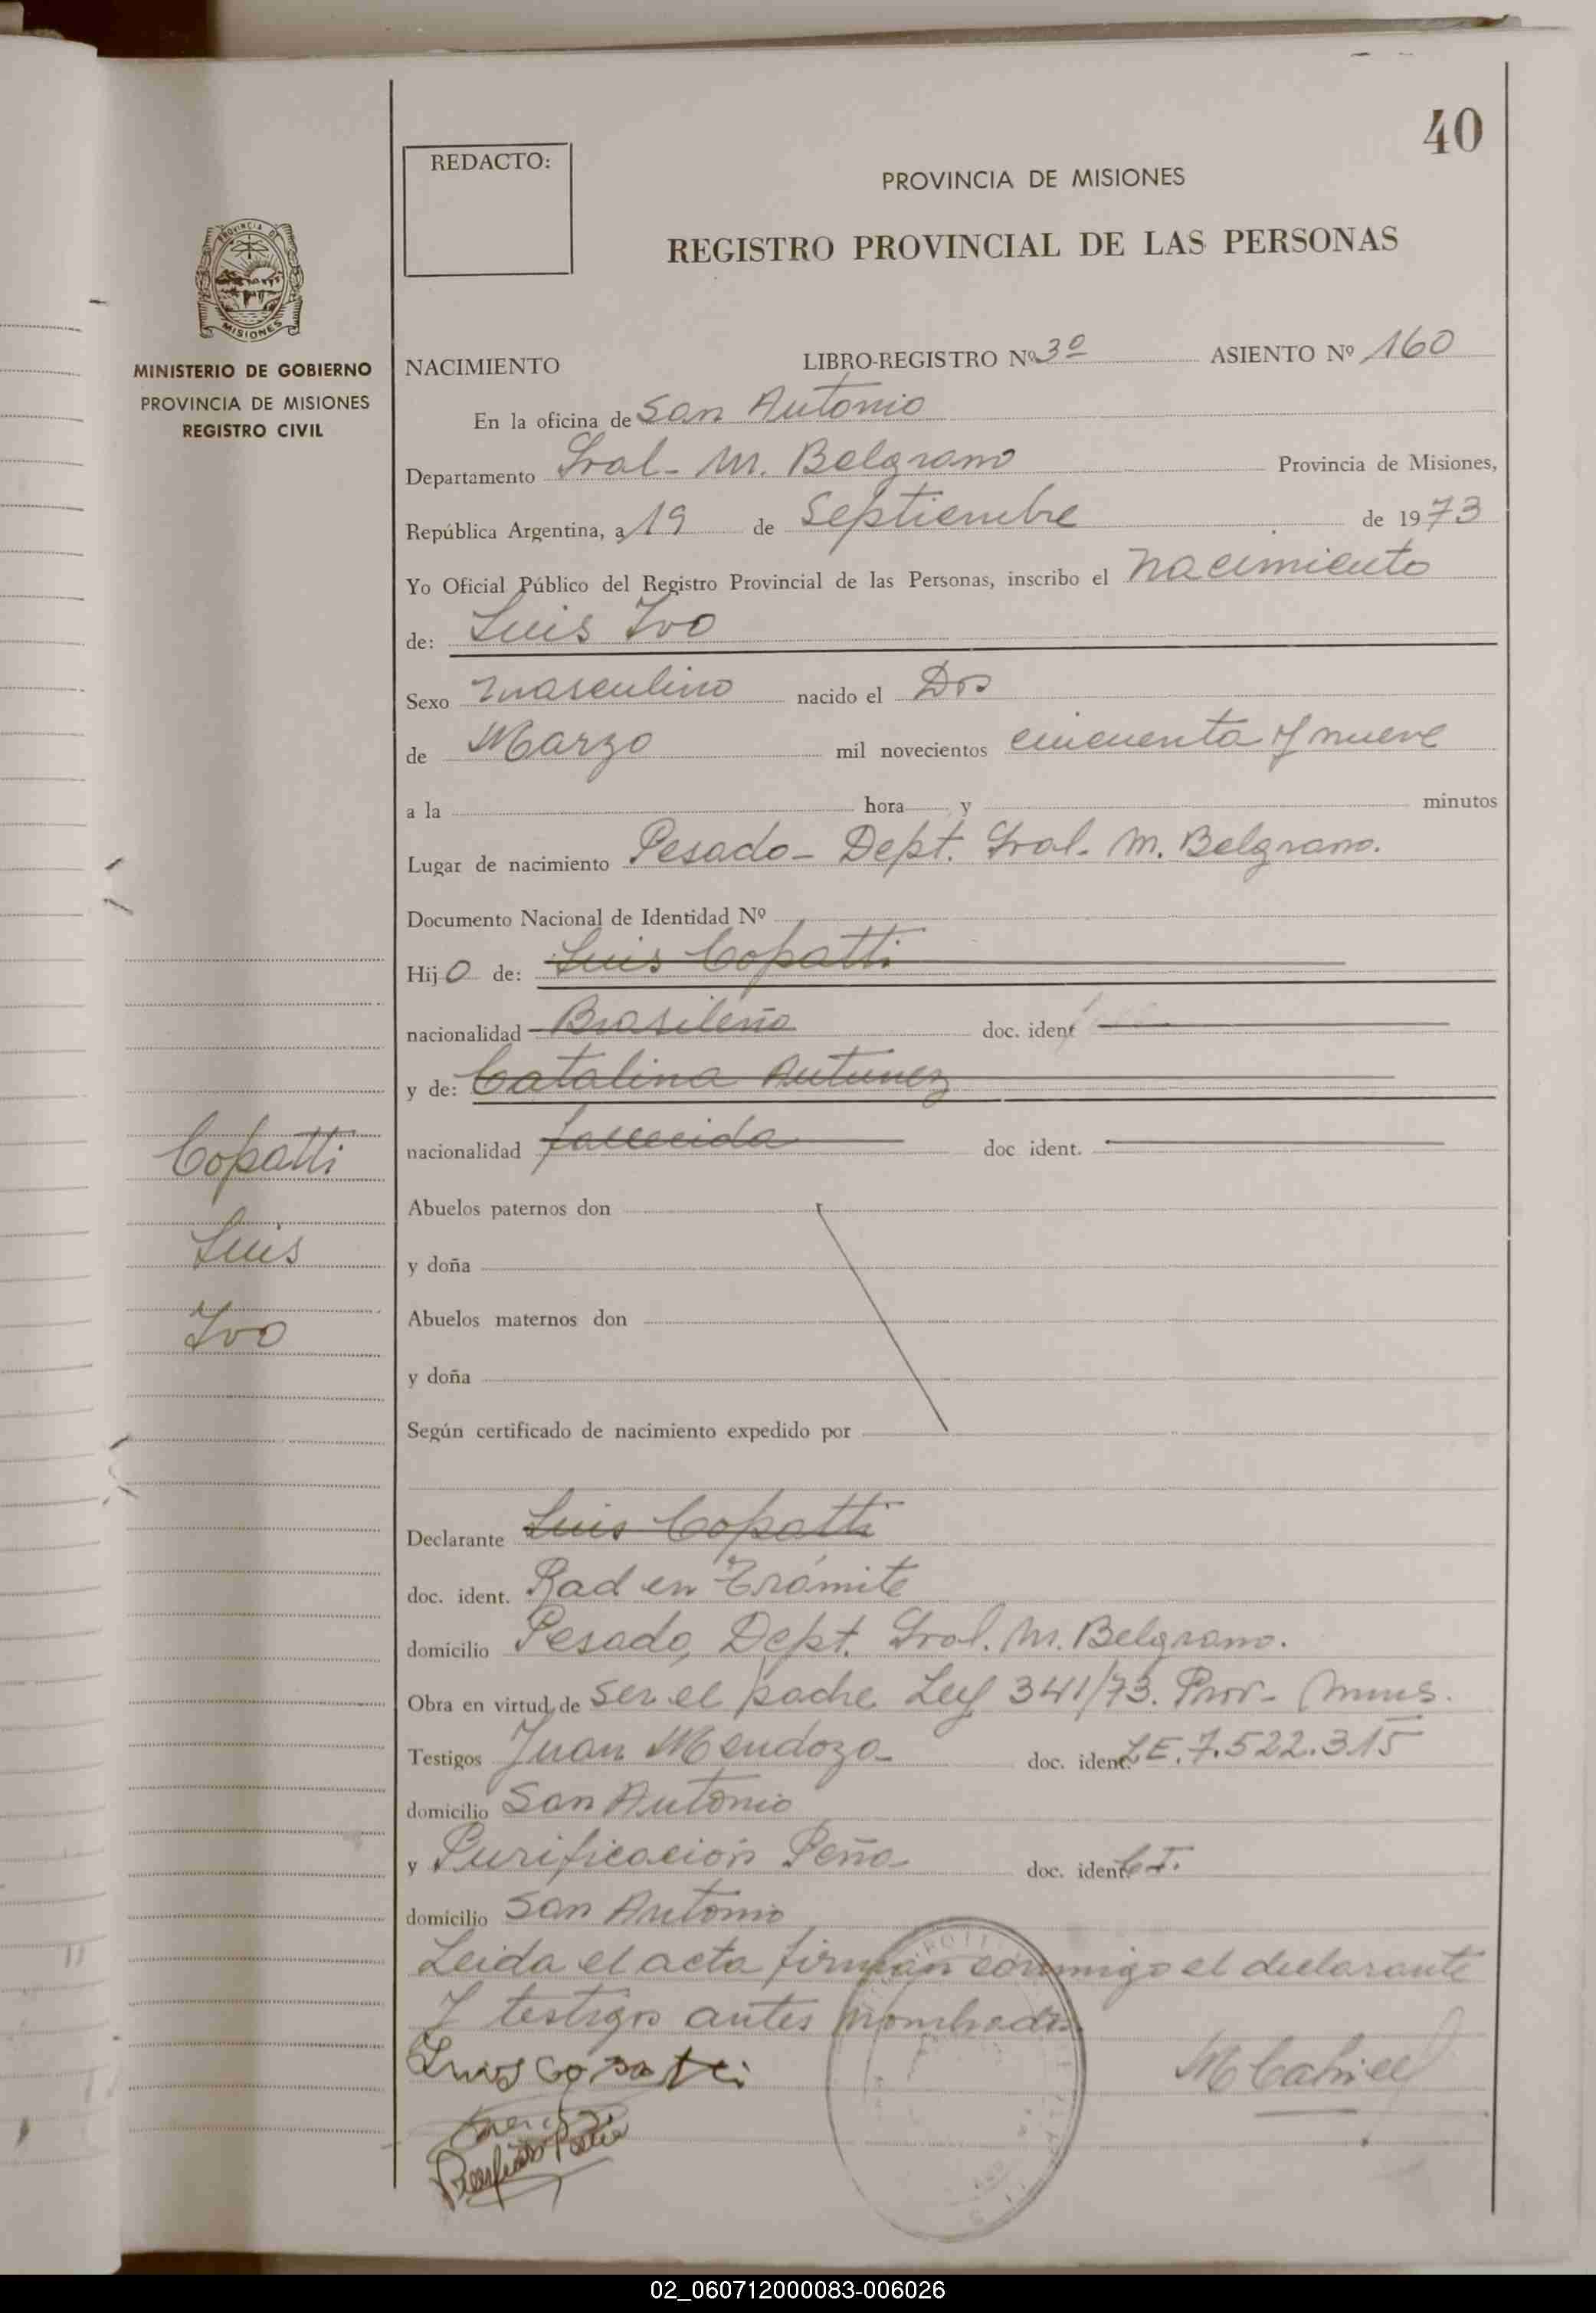 40
REDACTO:
PROVINCIA DE MISIONES
REGISTRO PROVINCIAL DE LAS PERSONAS
PROVINCIA DE
MISIONES
MINISTERIO DE GOBIERNO
PROVINCIA DE MISIONES
REGISTRO CIVIL
NACIMIENTO LIBRO-REGISTRO Nº 3º ASIENTO Nº 160
En la oficina de San Antonio
Departamento Gral- M. Belgrano Provincia de Misiones,
República Argentina, a 19 de Septiembre de 1973
Yo Oficial Público del Registro Provincial de las Personas, inscribo el nacimiento
de: Luis Ivo
Sexo masculino nacido el Dos
de Marzo mil novecientos cincuenta y nueve
a la hora y minutos
Lugar de nacimiento Pesado- Dept. Gral. M. Belgrano.
Documento Nacional de Identidad Nº
Hijo de: Luis Copatti
nacionalidad Brasileña doc. ident
y de: Catalina Autunez
nacionalidad fallecida doc ident.
Copatti
Luis
Ivo
Abuelos paternos don
y doña
Abuelos maternos don
y doña
Según certificado de nacimiento expedido por
Declarante Luis Copatti
doc. ident. Rad en Trámite
domicilio Pesado, Dept. Gral. M. Belgrano.
Obra en virtud de ser el padre Ley 341/73. Prov-
Testigos Juan Mendoza doc. ident. L.E. 7.522.315
domicilio San Antonio
y Purificación Peña doc. ident. C.I.
domicilio San Antonio
Leida el acta firman conmigo el declarante
y testigos antes nombrados.
Luis Copatti
02_060712000083-006026